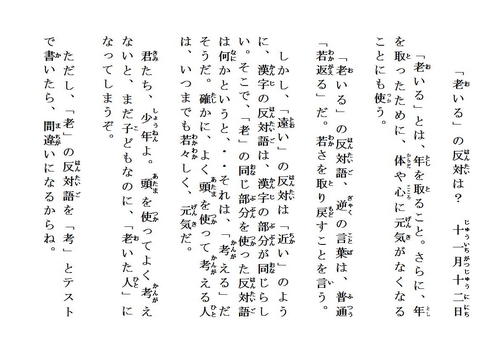 「老いる」の反対は?　十一月十二日
「老いる」とは、年を取ること。さらに、年
を取ったために、体や心に元気がなくなる
ことにも使う。
「老いる」の反対語、逆の言葉は、普通
「若返る」だ。若さを取り戻すことを言う。
しかし、「遠い」の反対は「近い」のよう
に、漢字の反対語は、漢字の部分が同じらし
い。そこで、「老」の同じ部分を使った反対語
は何かというと、・・・それは、「考える」だ
そうだ。確かに、よく頭を使って考える人
は、いつまでも若々しく、元気だ。
君たち、少年よ。頭を使ってよく考え
ないと、まだ子どもなのに、「老いた人」に
なってしまうぞ。
ただし、「老」の反対語を「考」とテスト
で書いたら、間違いになるからね。